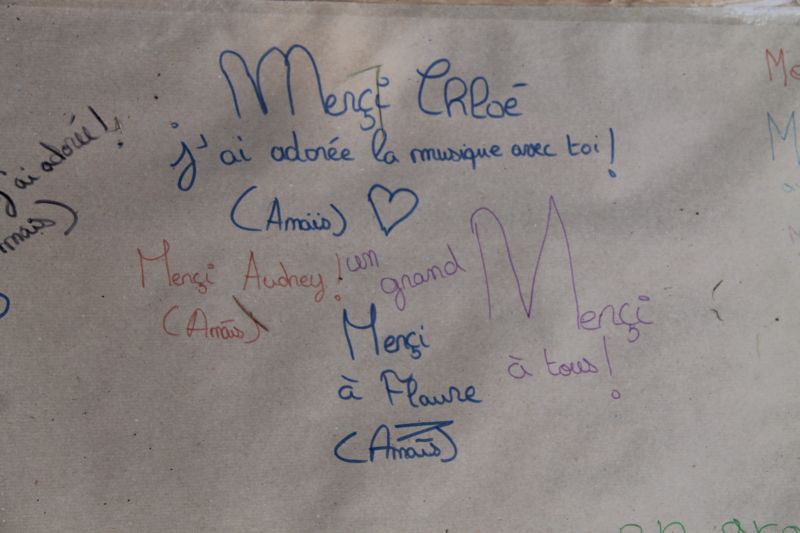 Merçi Chloé
j'ai adorée la musique avec toi!
(Anaïs)
j'ai adorée!
Merçi Audrey!
(Anaïs)
un
grand
Merçi
à tous!
Merçi
à Flaure
(Anaïs)